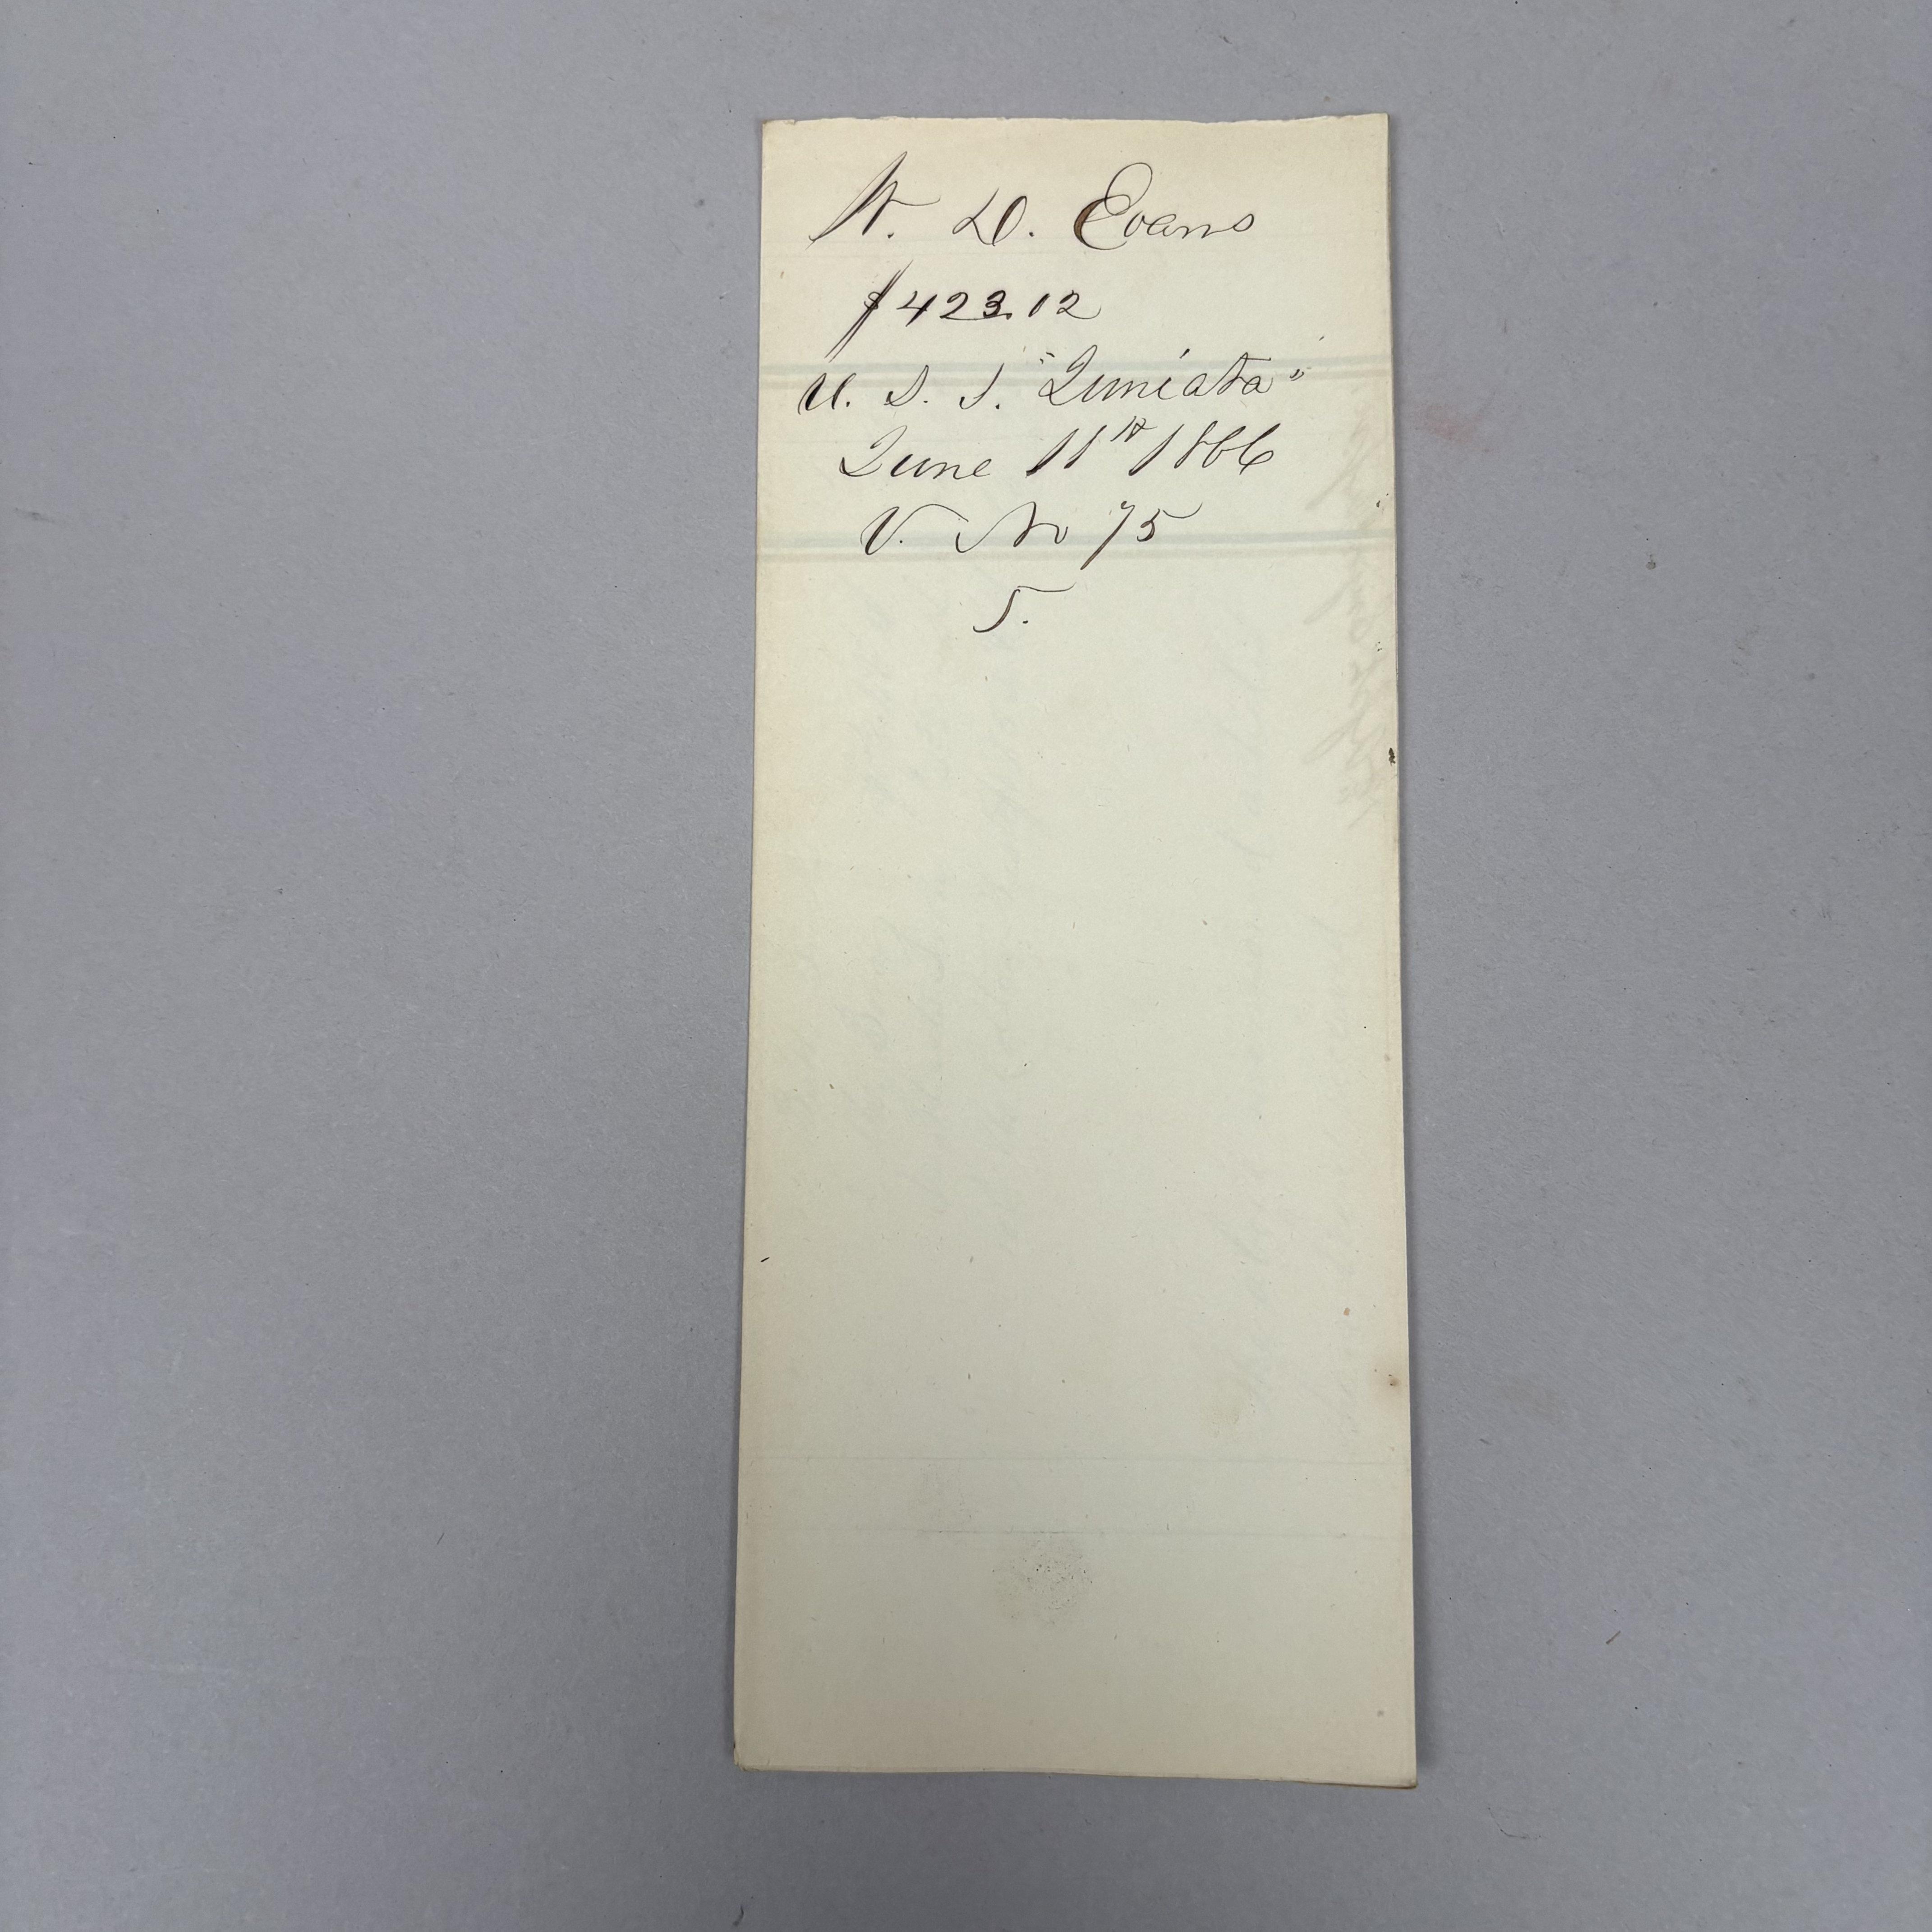 W. D. Evans
$423.12
U. S. S. "Juniata"
June 11th 1866
V. No 75
5.